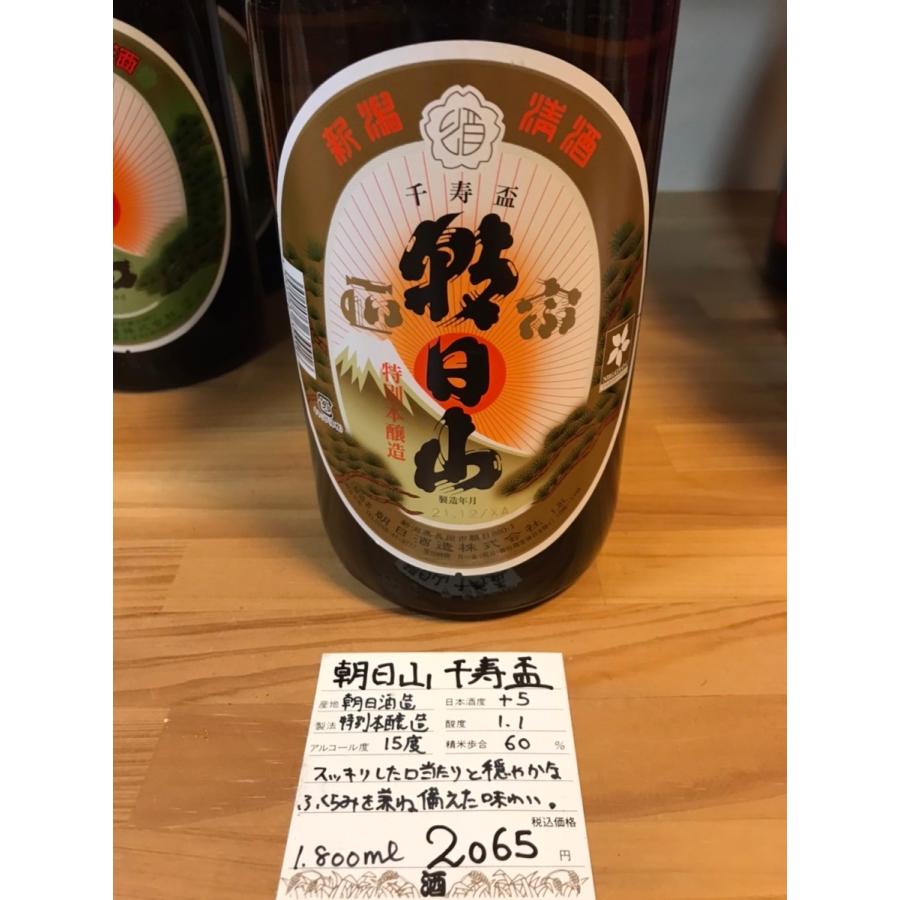 新潟 清酒
千寿盃
朝日山
特別本醸造
製造年月
21.12/XA
朝日酒造株式会社
朝日山 千寿盃
産地 朝日酒造 日本酒度 +5
製法 特別本醸造 酸度 1.1
アルコール度 15度 精米歩合 60 %
スッキリした口当たりと穏やかな
ふくらみを兼ね備えた味わい。
税込価格
1.800ml 2065 円
酒